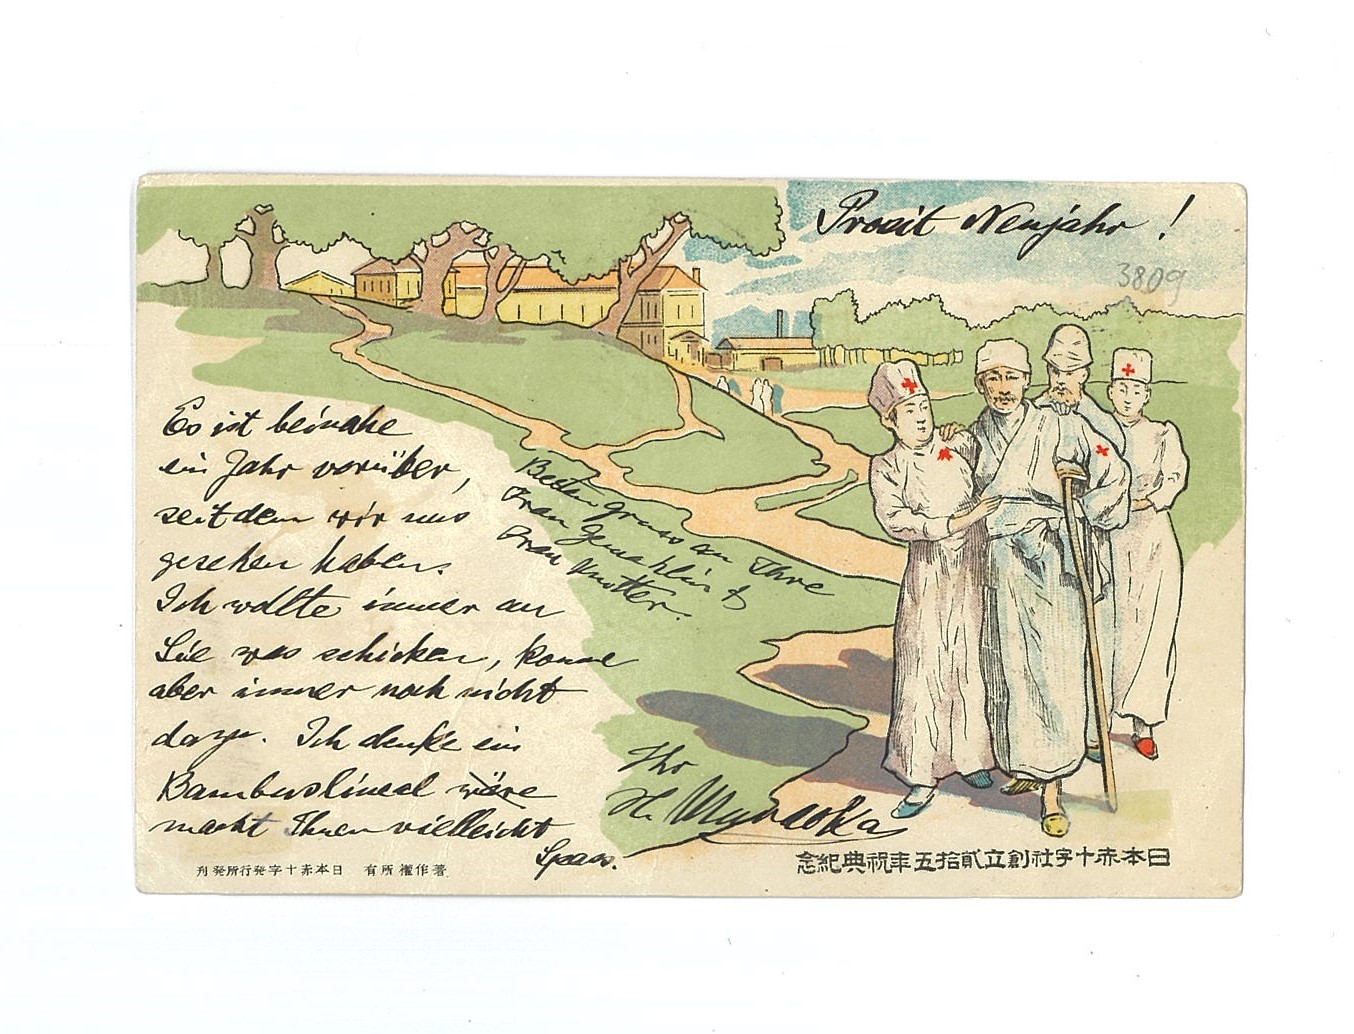 Prosit Neujahr!
3809
Es ist beinahe
ein Jahr vorüber,
seitdem wir uns
gesehen haben.
Ich wollte immer an
Sie was schicken, konne
aber immer noch nicht
dazu. Ich denke ein
Bambuslineal wäre
macht Ihnen vielleicht
Spass.
Besten gruss an Ihre
Frau Gemahlin &
Frau Knotter.
Ihr
H.
日本赤十字社創立貳拾五年祝典紀念
著作權所有 日本赤十字発行所発刊